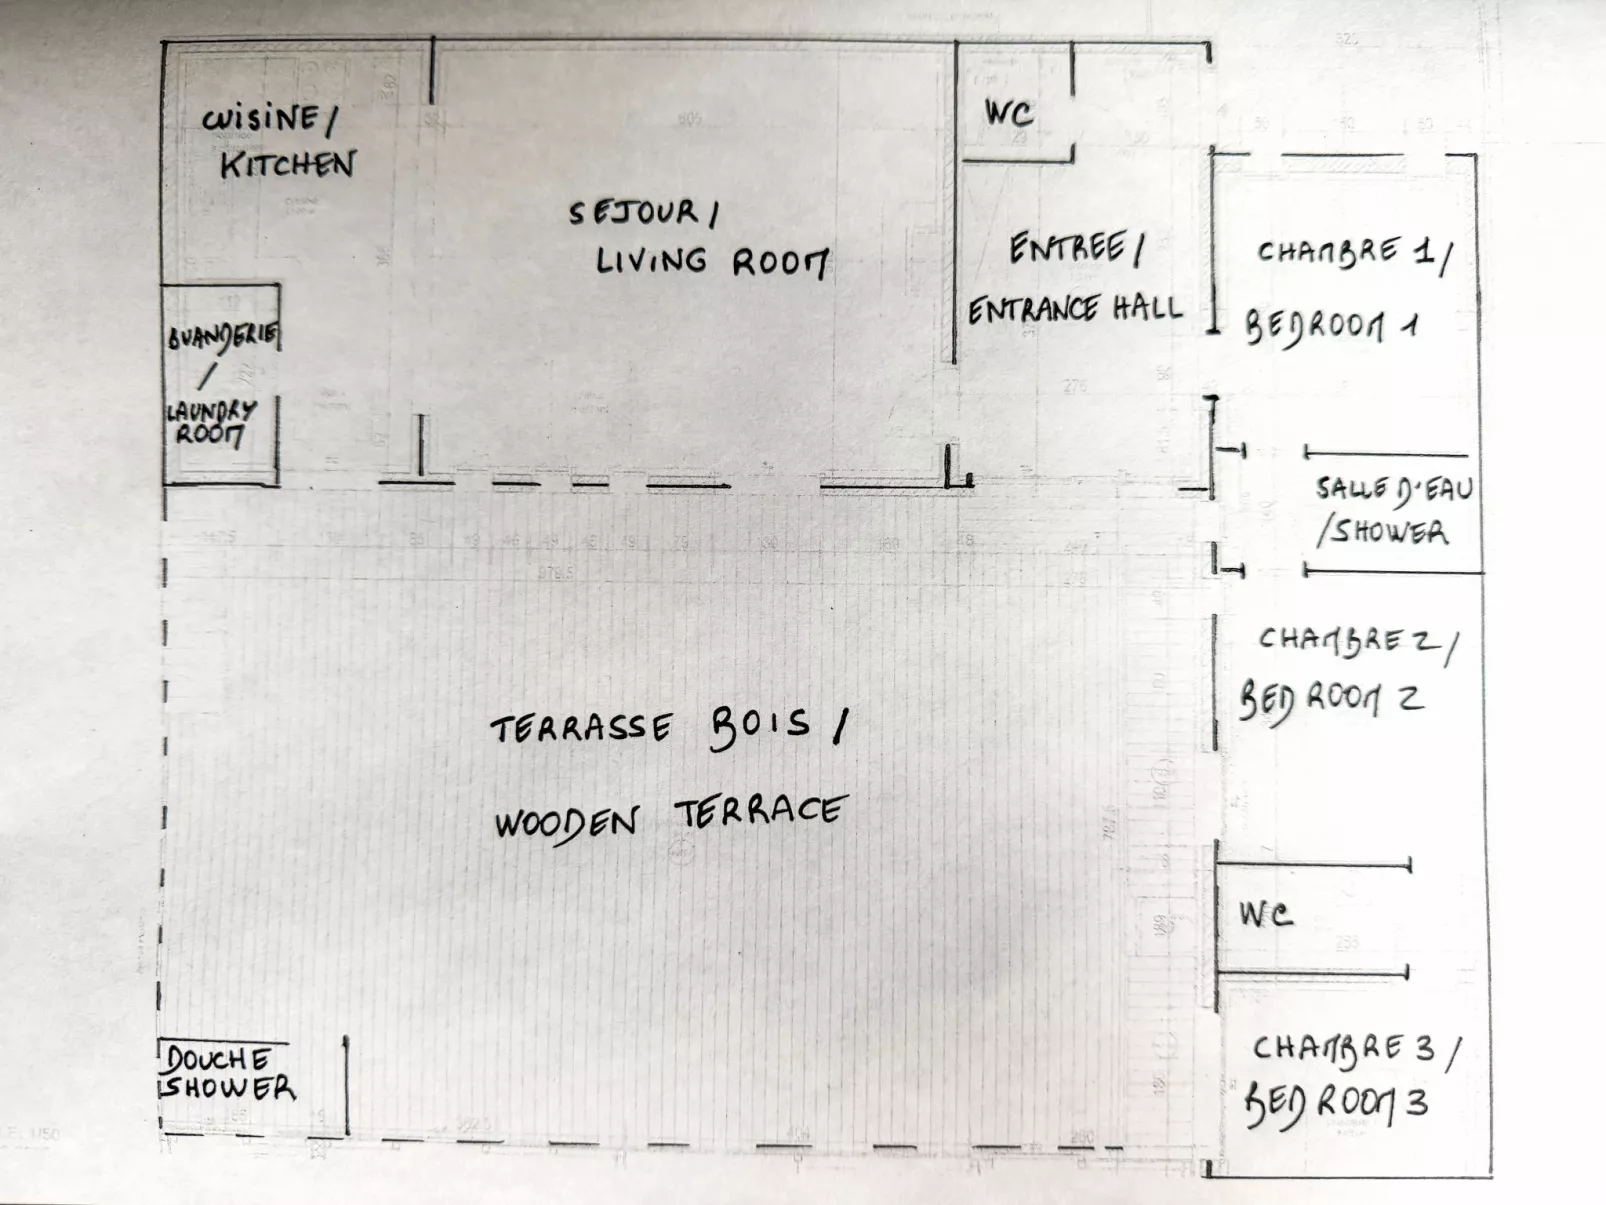 CUISINE /
KITCHEN
SEJOUR /
LIVING ROOM
WC
ENTREE /
ENTRANCE HALL
CHAMBRE 1 /
BEDROOM 1
BUANDERIE
/
LAUNDRY
ROOM
SALLE D'EAU
/SHOWER
CHAMBRE 2 /
BEDROOM 2
TERRASSE BOIS /
WOODEN TERRACE
WC
CHAMBRE 3 /
BEDROOM 3
DOUCHE
SHOWER